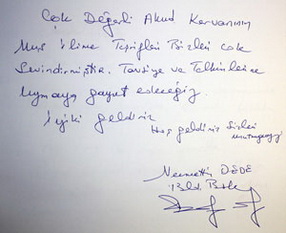 Çok Değerli Akud Kervanının
Muş İline Teşrifleri Bizleri Çok
Sevindirmiştir. Tavsiye ve Telkinlerine
Uymaya gayret edeceğiz.
İyiki geldiniz
Hoş geldiniz Sizleri
unutmayacağız
Necmettin DEDE
Bld. Bşk.